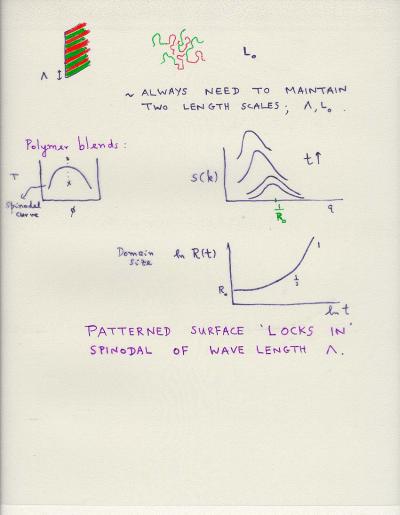 Λ
L₀
~ ALWAYS NEED TO MAINTAIN
TWO LENGTH SCALES; Λ, L₀.
Polymer blends:
T
x
Spinodal
curve
φ
S(k)
t↑
1/R₀
q
Domain
size
ln R(t)
R₀
1/3
1
ln t
PATTERNED SURFACE 'LOCKS IN'
SPINODAL OF WAVE LENGTH Λ.